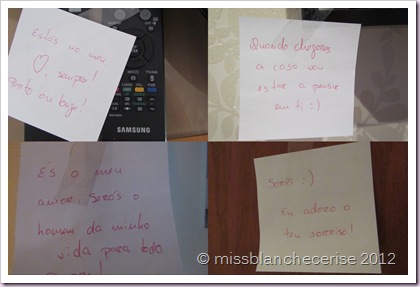 Estás no meu
♡, sempre!
Perto ou longe!
SAMSUNG
Quando chegares
a casa vou
estar a pensar
em ti :)
És o meu
amor. Serás o
homem da minha
vida para todo
Sorri :)
Eu adoro o
teu sorriso!
© missblanchecerise 2012